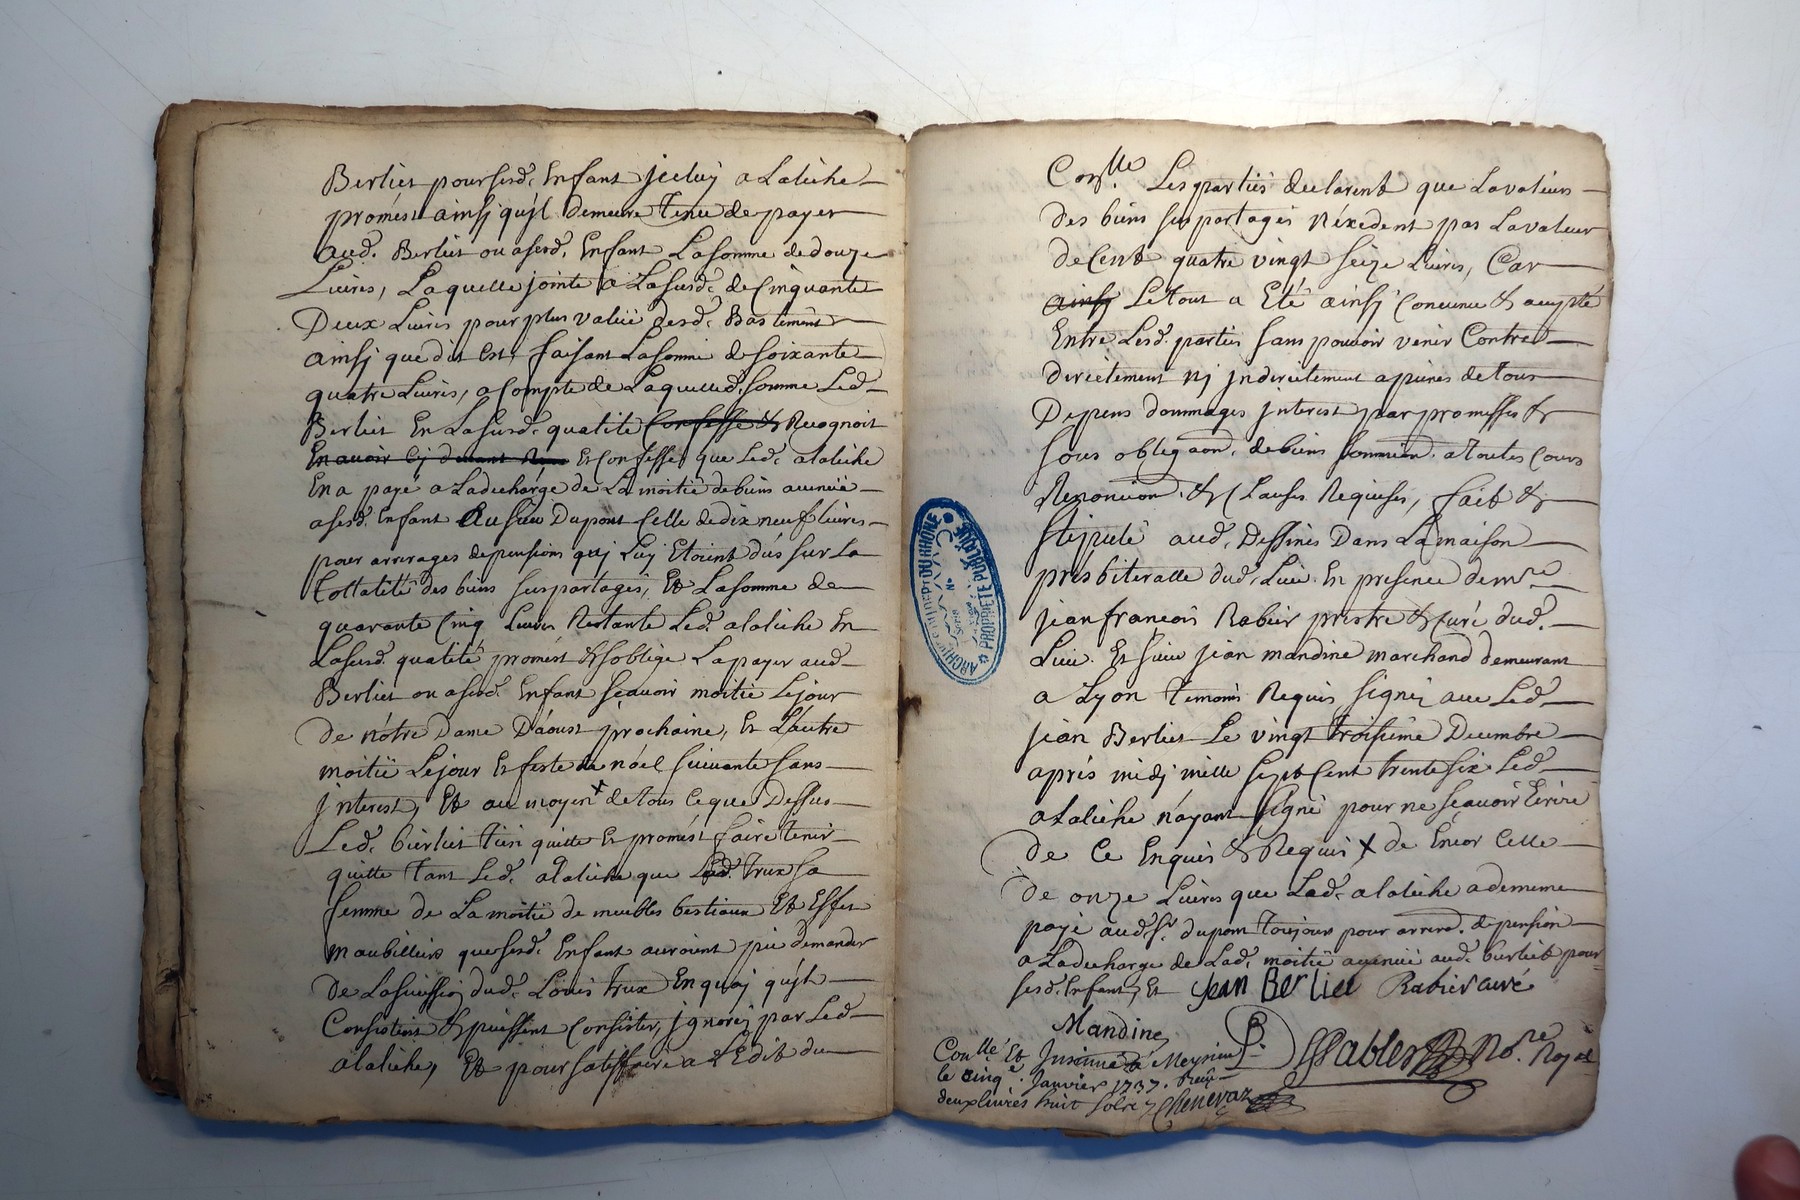 Berliet pour sesd. Enfant jceluy alaliche
promest ainsj qu'jl demeure tenu de payer
aud. Berliet ou a sesd. Enfant La somme de douze
Livres, Laquelle jointe a La susd. de Cinquante
Deux Livres pour plus valüe desd. Bastiment
ainsj que dit est, faisant La somme de soixante
quatre Livres, a Compte de Laquelled. somme Led.
Berliet En La susd. qualité Confesse & Recognoit
En avoir Cj devant Et Confesse que Led. alaliche
En a payé a La decharge de La moitié de biens avenüe
a sesd. Enfant Au sieur Dupont Celle de dix neuf livres
pour arrerages de pensions quj Luy Etoint dûs sur La
tottatité des biens suspartagés, Et La somme de
quarante Cinq Livres Restante Led. alaliche En
La susd. qualité promést & s'oblige La payer aud.
Berliet ou a sesd. Enfant sçavoir moitié Le jour
de nótre Dame D'áoust prochaine, Et L'autre
moitié Le jour Et feste de nóel suivante sans
jnterest, Et au moyen + de tous Ce que Dessus
Led. bérliet tien quitte Et promést faire tenir
quitte tant Led. alaliche que Lad. trux sa
femme de La moitié de meubles bestiaux Et Effet
maubilliers que sesd. Enfant auroient pû demander
De La suission dud. Loüis trux En quoj qu'jl
Consistent & puissent Consister, jgnorés par Led.
alaliche, Et pour satisffaire a L'Edit du
Con.lle Les partiés declarent que La valeurs
des biens suspartagés n'éxedent pas La valeur
de Cent quatre vingt seize Livres, Car
ainsj Le tout a Eté ainsj Convenu & accepté
Entre Lesd. parties sans pouvoir venir Contre
directement nj jndirectement a peines de tous
Depens dommages jnterest par promesses &
sous obligaon. de biens a toutes Cours
Renonciaon. & Clauses Requises, fait &
stipulé aud. Dessines Dans La maison
presbiteralle dud. Lieu En presence de mre
jean francois Rabier prestre & curé dud.
Lieu. Et sieur jean mandine marchand demeurant
a Lyon temoins Requis signés avec Led.
jean Berliet Le vingt troisiéme Decembre
aprés midj mille Sept Cent trente six Led.
alaliche n'ayant signé pour ne sçavoir Ecrire
de Ce Enquis & Requis + de Encor Celle
de onze Livres que Lad. alaliche a de meme
payé aud. Sr. dupont toujours pour arrera. de pension
a La decharge de Lad. moitié avenüe aud. berliet pour
sesd. Enfant, Et Jean Berliet Rabier curé
Mandine
Con.lle Et Jnsinué a Meysieu
le cinq.e Janvier 1737. Reçu
deux livres huit sols Chenevaz
Sablier No.re Royal
ARCHIVES DU DEPT DU RHÔNE
PROPRIÉTÉ PUBLIQUE